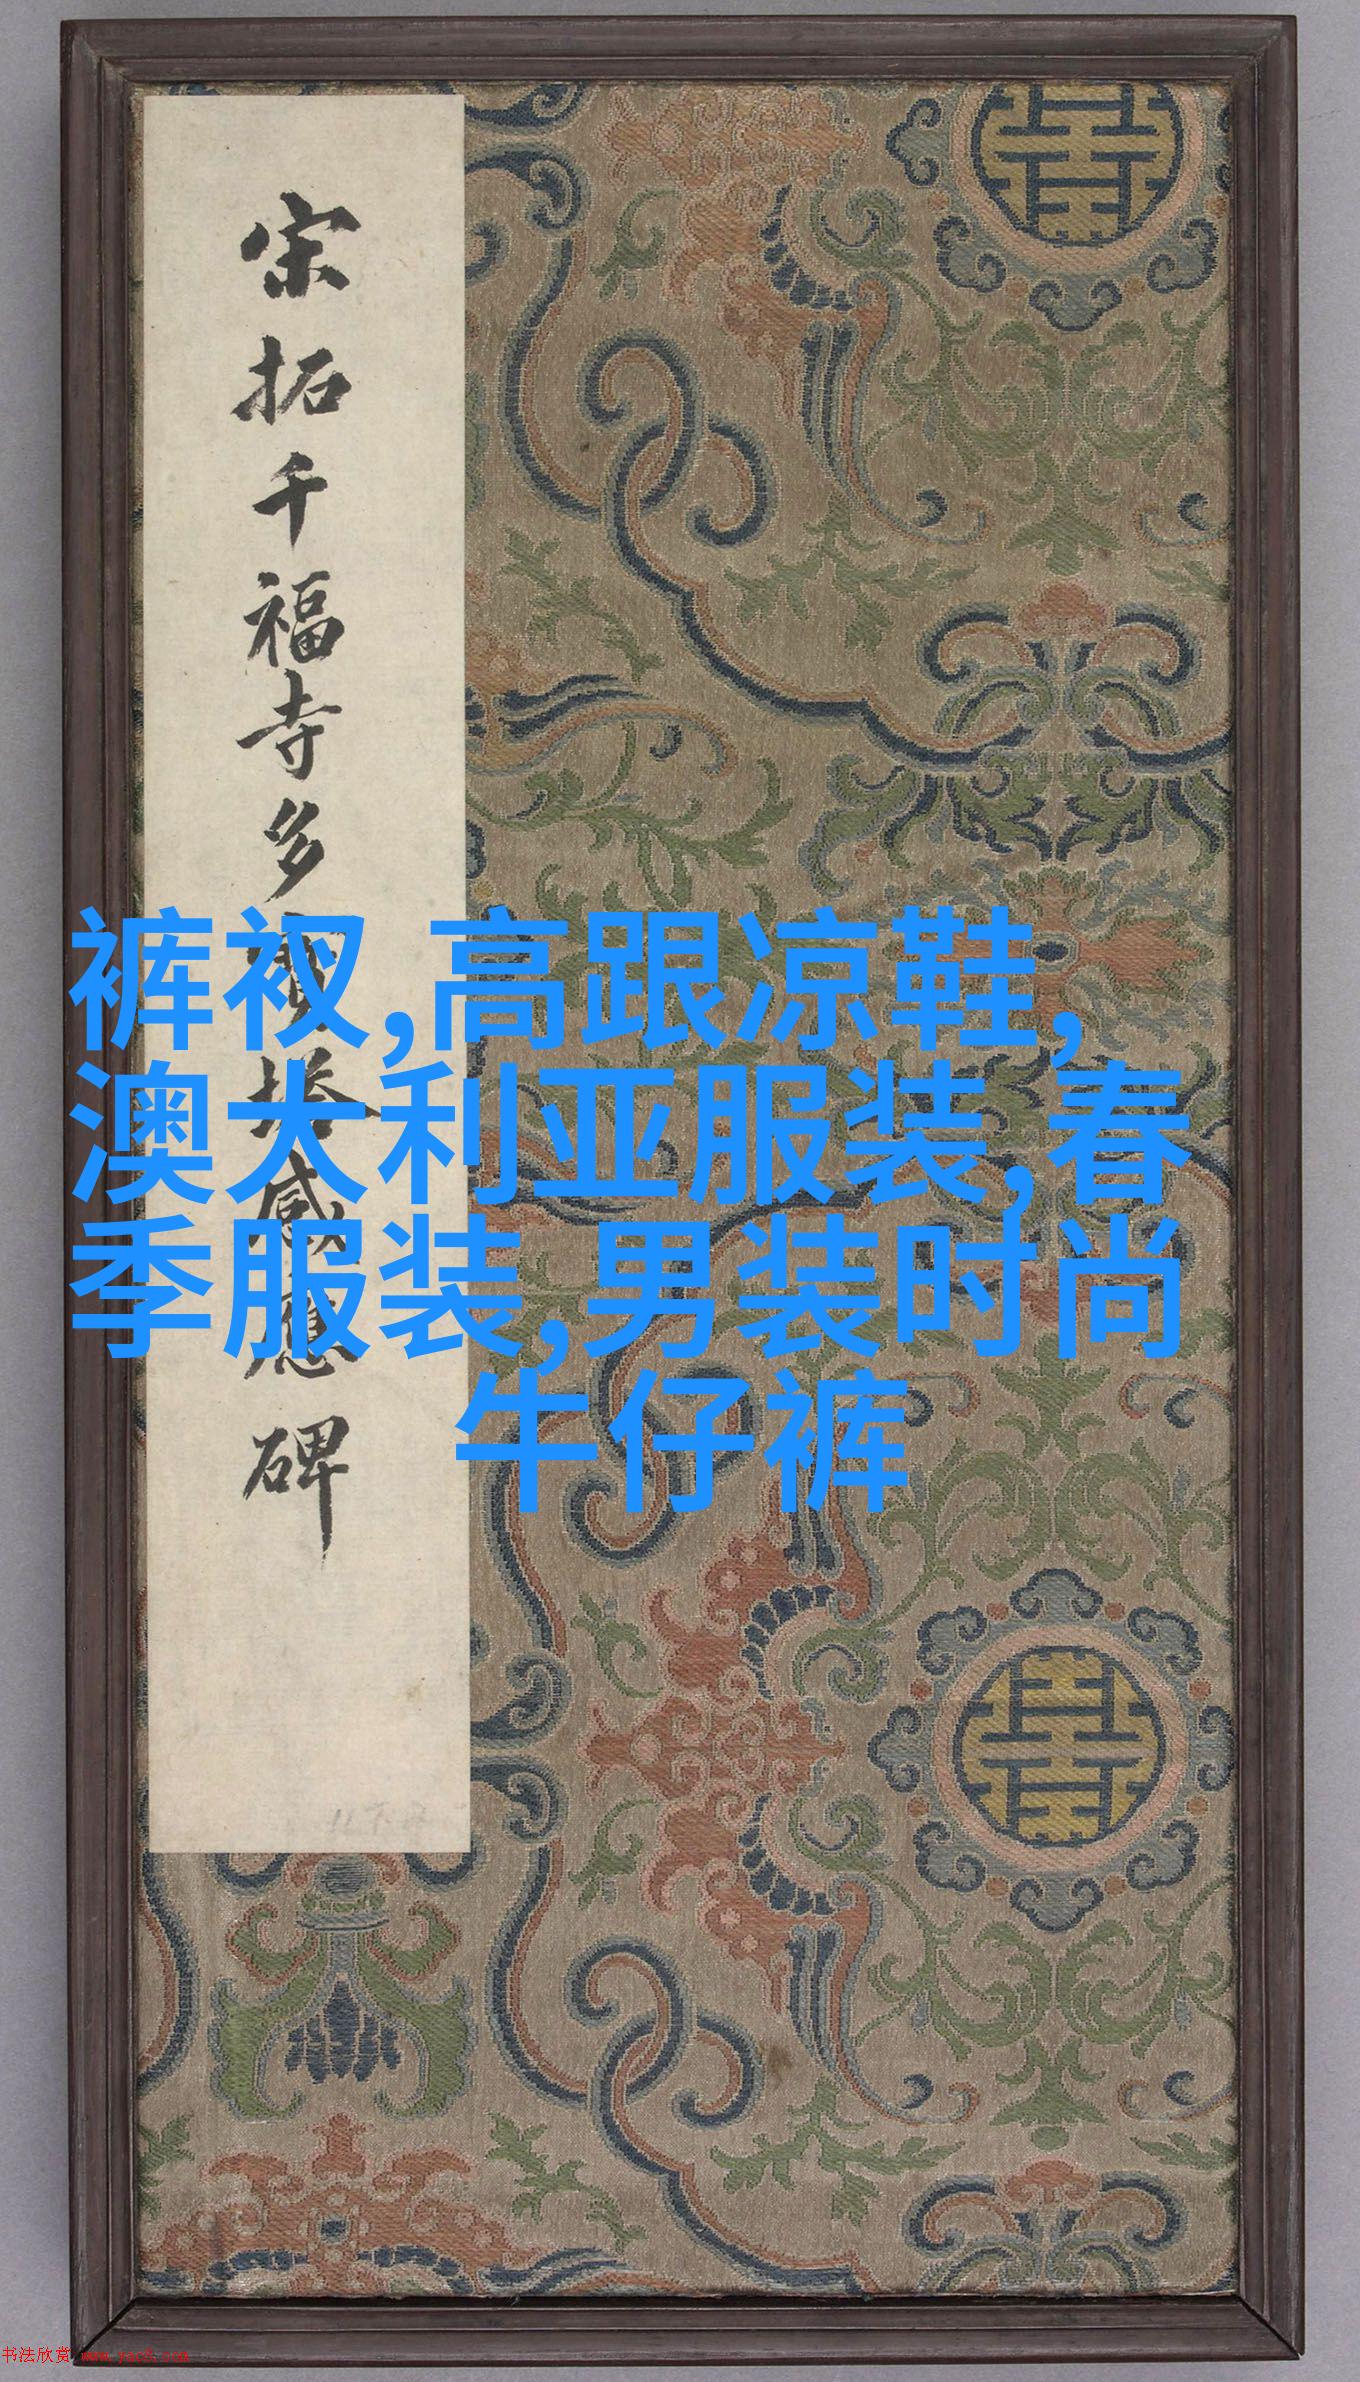 宋拓千福寺多寶塔感應碑
裤衩,高跟凉鞋,
澳大利亚服装,春
季服装,男装时尚
牛仔裤
书法欣赏 www.yac8.com